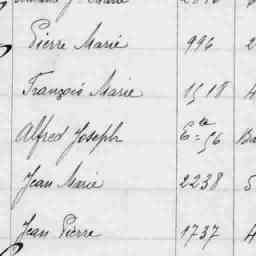 Pierre Marie 996 2
François Marie 1518 4
Alfred Joseph Ba
Jean Marie 2238 5
Jean Pierre 1737 4